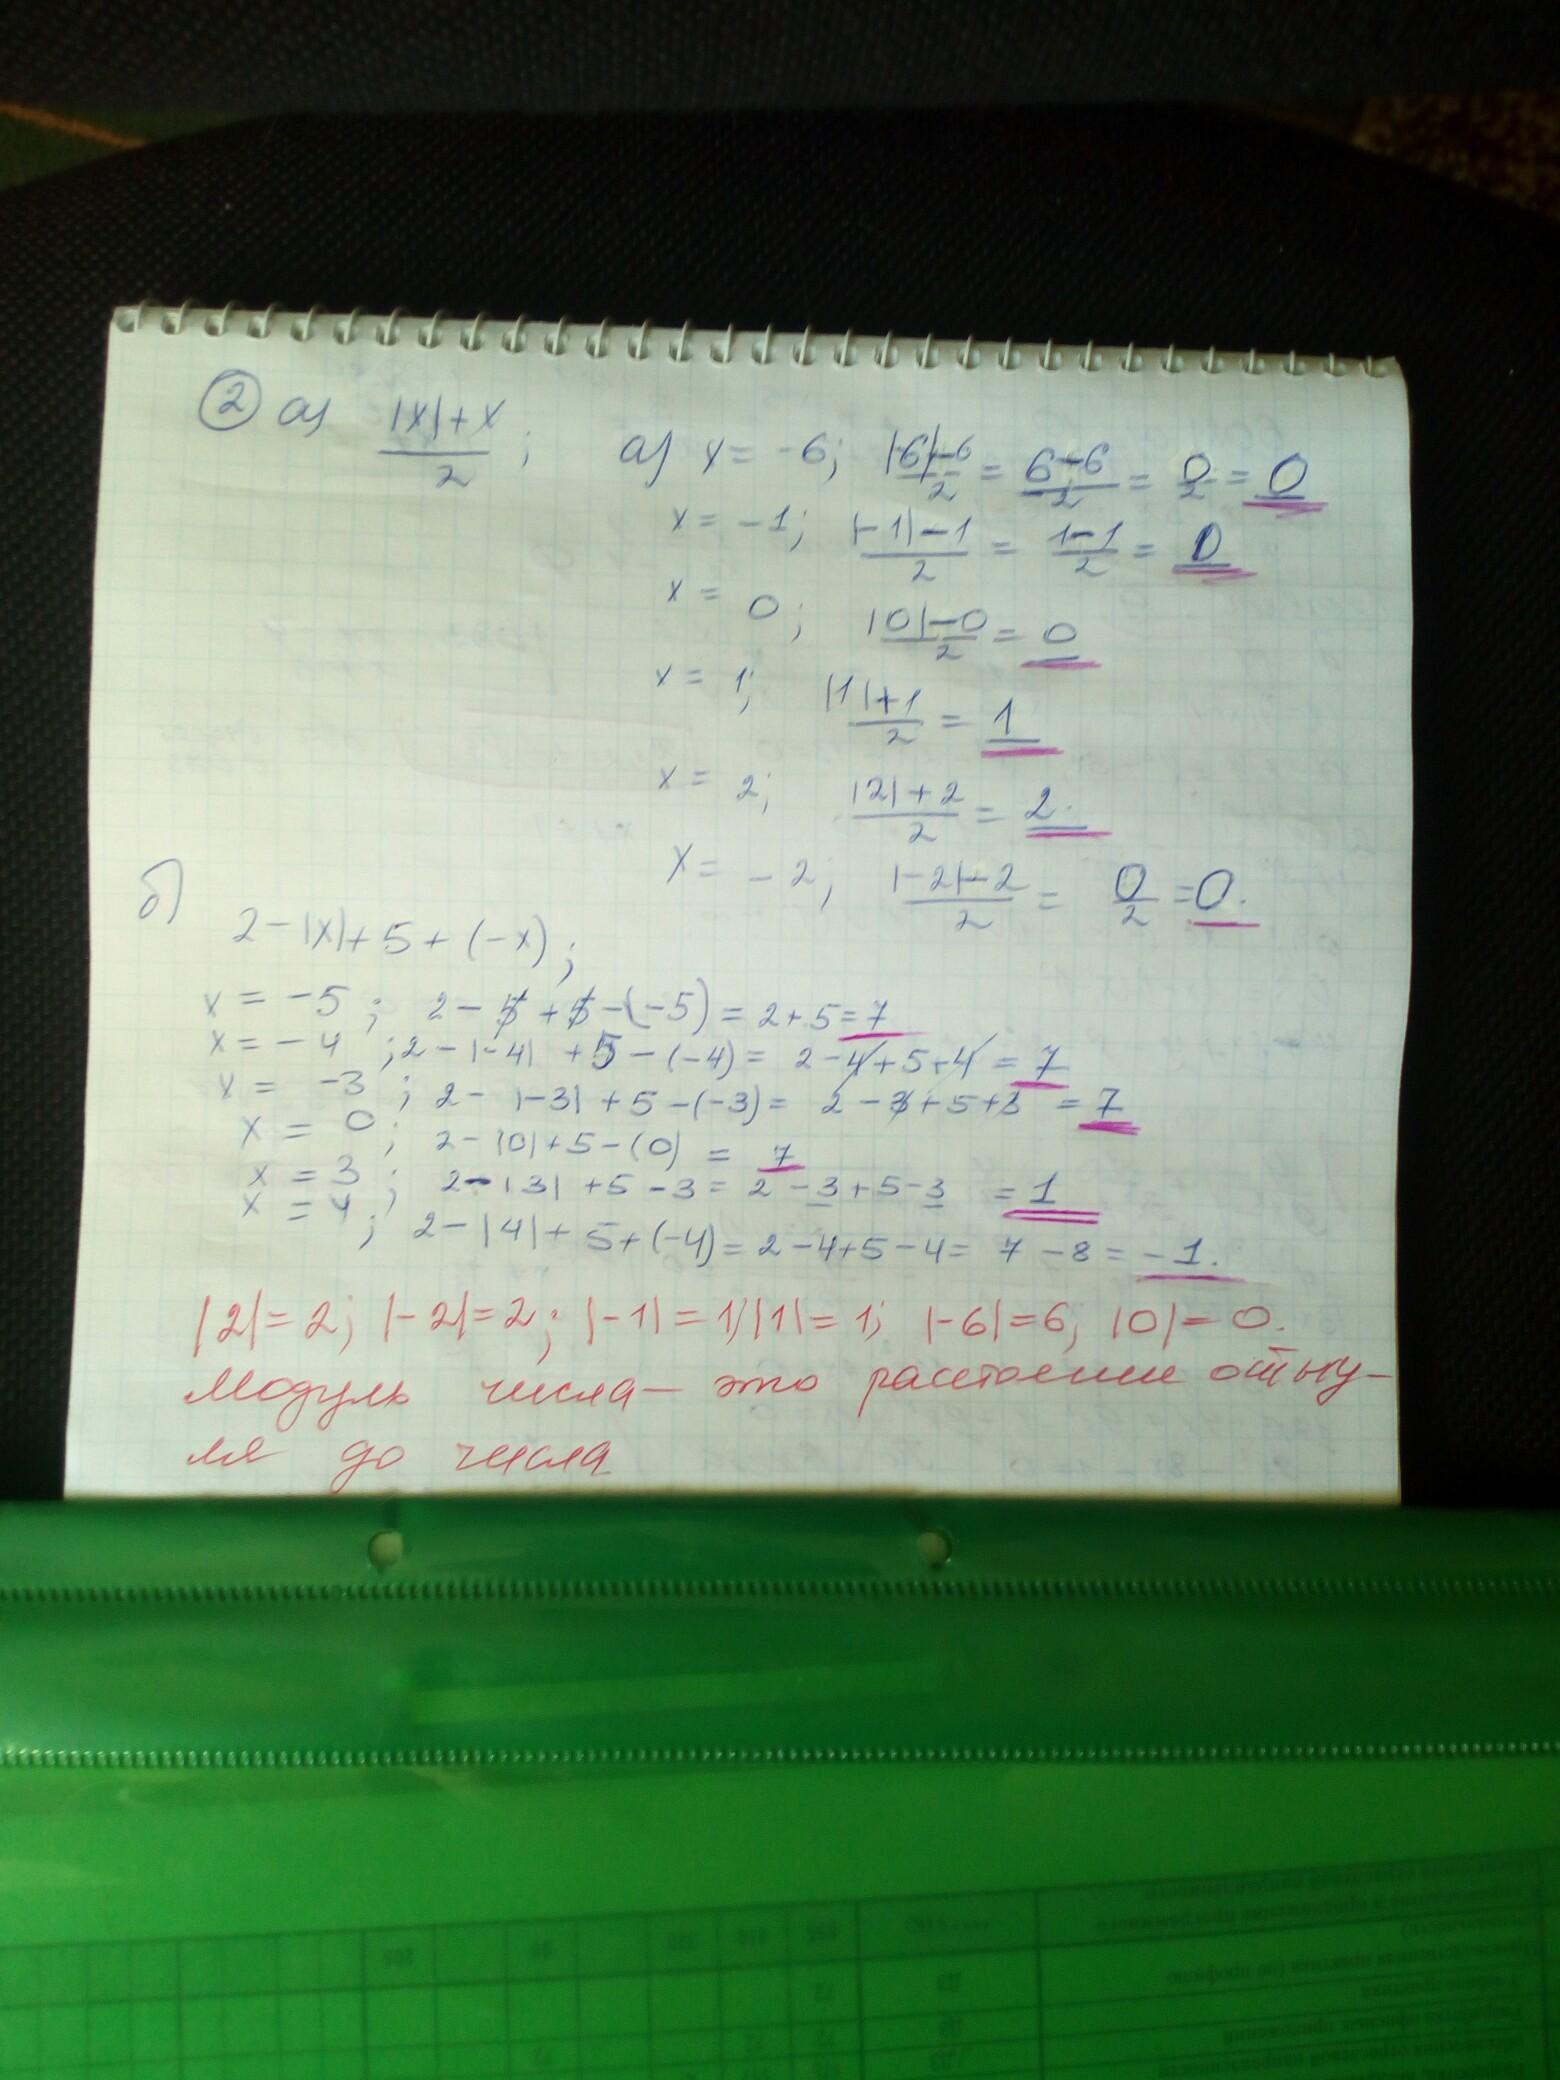 ② а) (|x|+x)/2 ; а) x = -6; (|-6|-6)/2 = (6-6)/2 = 0/2 = 0
x = -1; (|-1|-1)/2 = (1-1)/2 = 0
x = 0; (|0|-0)/2 = 0
x = 1; (|1|+1)/2 = 1
x = 2; (|2|+2)/2 = 2.
x = -2; (|-2|-2)/2 = 0/2 = 0.
б)
2-|x|+5+(-x);
x = -5; 2-5+5-(-5) = 2+5=7
x = -4; 2-|-4|+5-(-4) = 2-4+5+4 = 7
x = -3; 2-|-3|+5-(-3) = 2-3+5+3 = 7
x = 0; 2-|0|+5-(0) = 7
x = 3; 2-|3|+5-3 = 2-3+5-3 = 1
x = 4; 2-|4|+5+(-4) = 2-4+5-4 = 7-8 = -1.
|2|=2; |-2|=2; |-1|=1; |1|=1; |-6|=6; |0|=0.
Модуль числа — это расстояние от ну-
ля до числа